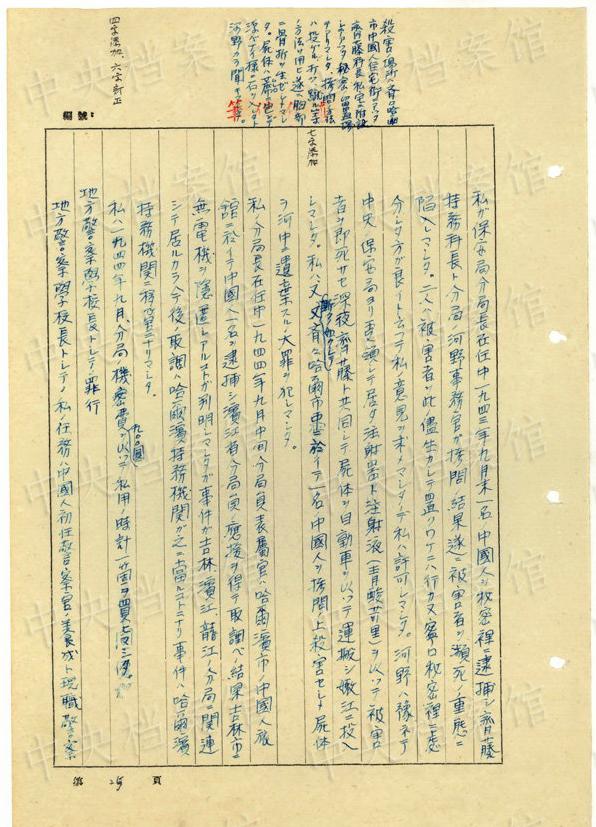 四字添加、六字訂正
殺害場所ハ斉々哈爾
市中国人住宅街ニアッタ
斉藤科長私宅ニ附設
秘密留置場
デアリマシタ。拷問方法
ハ投ゲル、打ツ、蹴ル等
ノ方法ヲ用ヒ遂ニ胸部
ニ骨折ヲ生ゼシメマシ
タ。
河野カラ聞キマシタ。
七字添加
編號:
私ガ保安局分局長在任中一九四三年九月末一名ノ中国人ヲ秘密裡ニ逮捕シ斉藤
特務科長ト分局ノ河野事務官ガ拷問ノ結果遂ニ被害者ヲ瀕死ノ重態ニ
陥入レマシタ。二人ハ被害者ガ此ノ儘生カシテ置クワケニハ行カヌ寧ロ秘密裡ニ処
分シタ方ガ良イト云ッテ私ノ意見ヲ求メマシタノデ私ハ許可シマシタ。河野ハ豫ネテ
中央ノ保安局ヨリ受領シテ居タ注射器ト注射液(青酸加里)ヲ以ッテ被害
者ヲ即死サセ深夜斉藤ト共同シテ屍体ヲ自動車ヲ以ッテ運搬シ嫩江ニ投入
シマシタ。私ハ又斉々哈爾市ニ於イテ一名ノ中国人ヲ拷問ノ上殺害セシメ屍体
ヲ河中ニ遺棄スルノ大罪ヲ犯シマシタ。
私ノ分局長在任中一九四四年九月中旬分局員表属官ハ哈爾濱市ノ中国人旅
館ニ於イテ中国人一名ヲ逮捕シ濱江省分局員ノ應援ヲ得テ取調ベノ結果吉林市ニ
無電機ヲ隠匿シアルコトガ判明シマシタガ事件ガ吉林、濱江、龍江ノ分局ニ関連
シテ居ルカラ今後ノ取調ハ哈爾濱特務機関ガ之ニ当ルコトニナリ事件ハ哈爾濱
特務機関ニ移管ニナリマシタ。
私ハ一九四四年九月、分局ノ機密費九〇〇円ヲ以ッテ私用ノ時計一箇ヲ買ヒマシタ。
地方警察学校長トシテノ罪行
地方警察学校長トシテノ私ノ任務ハ中国人初任警察官ノ養成ト現職警察
第 25 頁